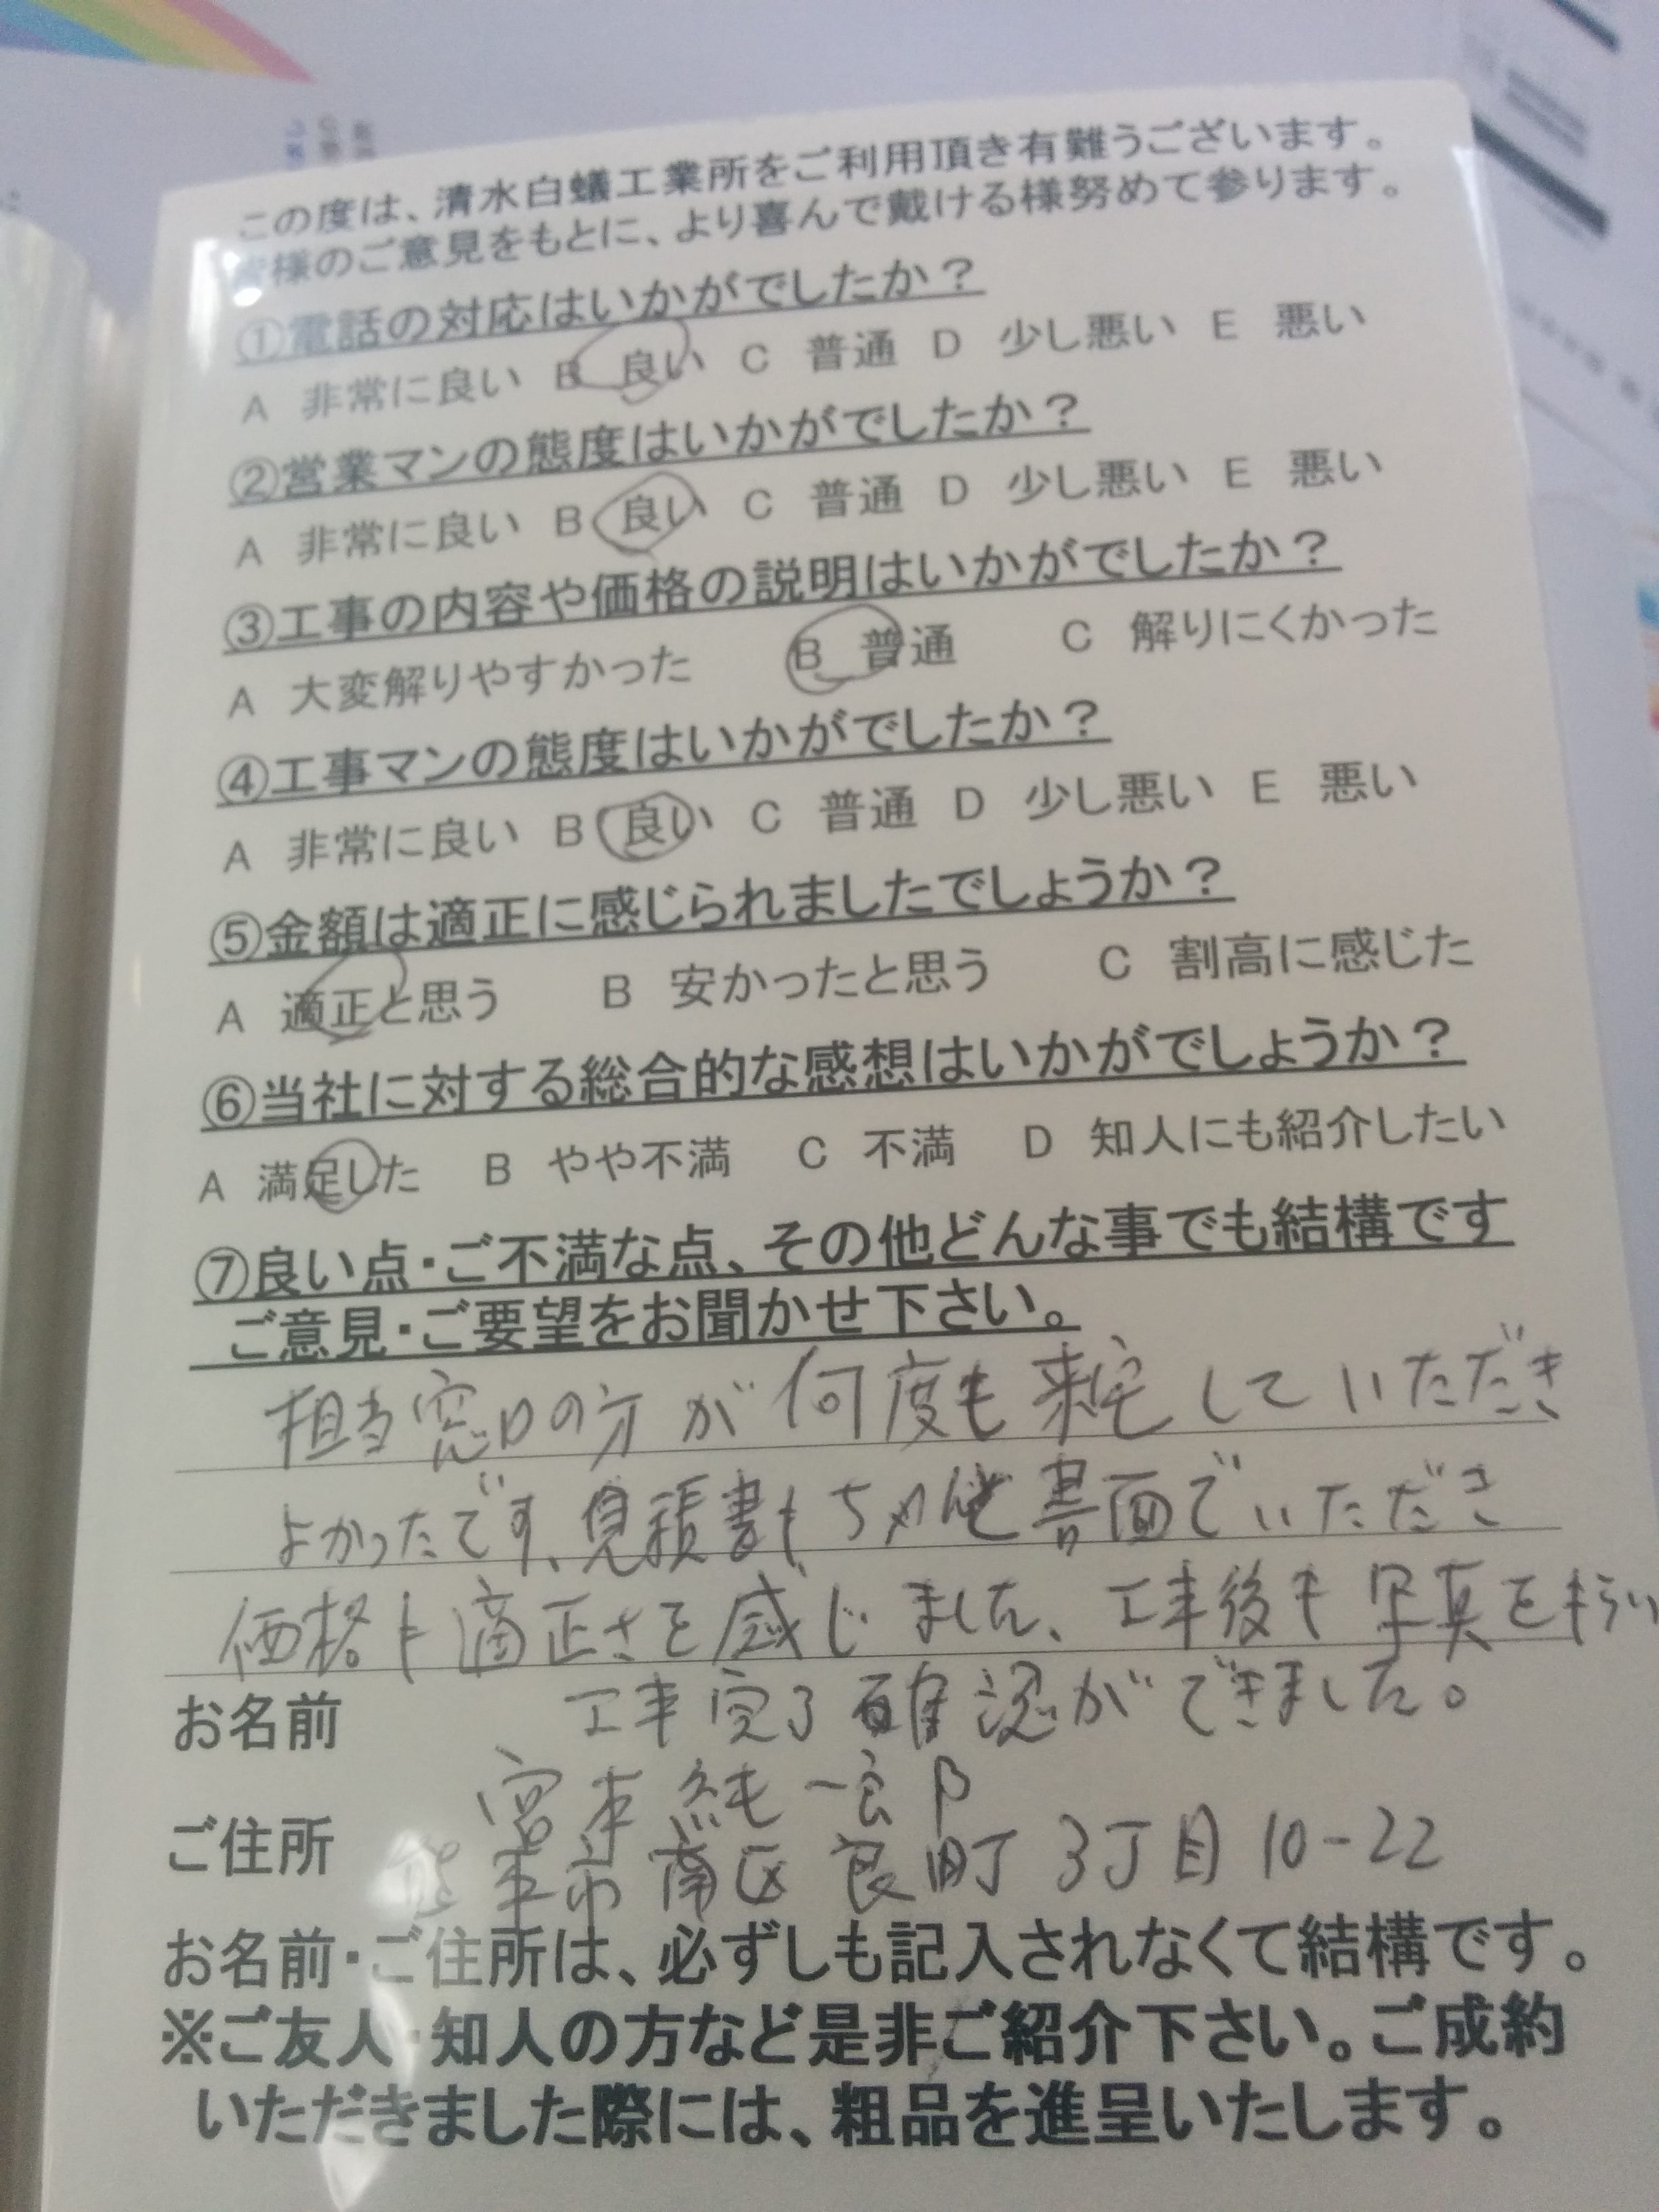 この度は、清水白蟻工業所をご利用頂き有難うございます。
皆様のご意見をもとに、より喜んで戴ける様努めて参ります。
①電話の対応はいかがでしたか？
A 非常に良い B 良い C 普通 D 少し悪い E 悪い
②営業マンの態度はいかがでしたか？
A 非常に良い B 良い C 普通 D 少し悪い E 悪い
③工事の内容や価格の説明はいかがでしたか？
A 大変解りやすかった B 普通 C 解りにくかった
④工事マンの態度はいかがでしたか？
A 非常に良い B 良い C 普通 D 少し悪い E 悪い
⑤金額は適正に感じられましたでしょうか？
A 適正と思う B 安かったと思う C 割高に感じた
⑥当社に対する総合的な感想はいかがでしょうか？
A 満足した B やや不満 C 不満 D 知人にも紹介したい
⑦良い点・ご不満な点、その他どんな事でも結構です
ご意見・ご要望をお聞かせ下さい。
担当窓口の方が何度も来宅していただき
よかったです、見積書も 書面でいただき
価格も適正さを感じました、工事後も写真をもらい
工事完了確認ができました。
お名前
宮本純一郎
ご住所
熊本市南区良町3丁目10-22
お名前・ご住所は、必ずしも記入されなくて結構です。
※ご友人・知人の方など是非ご紹介下さい。ご成約
いただきました際には、粗品を進呈いたします。